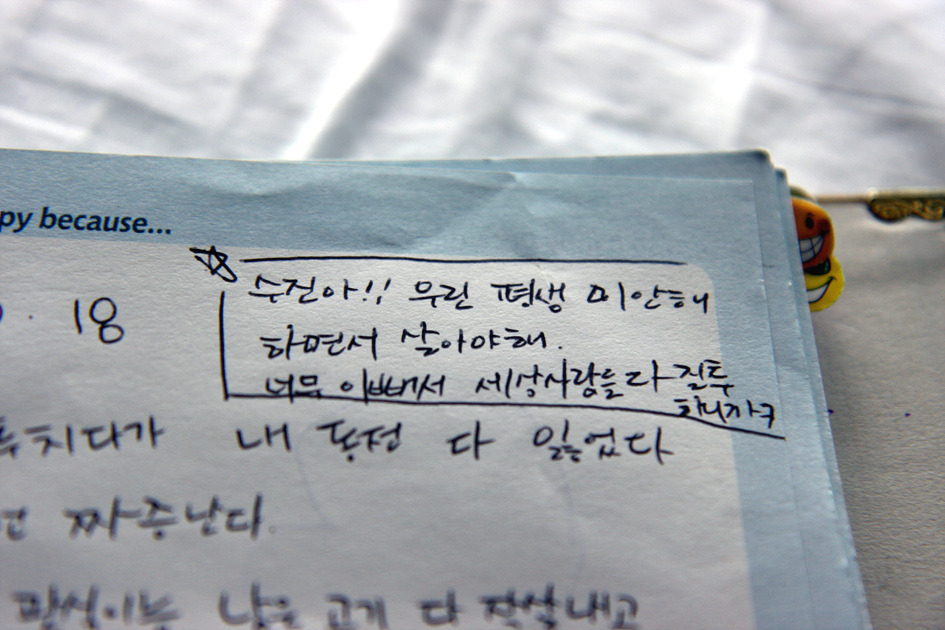 py because...
수진아!! 우린 평생 미안해
하면서 살아야해.
너무 이뻐서 세상사람들 다 질투
하니까ㅋ
18
치다가 내 동전 다 잃었다
짜증난다.
남은 고기 다 작살내고